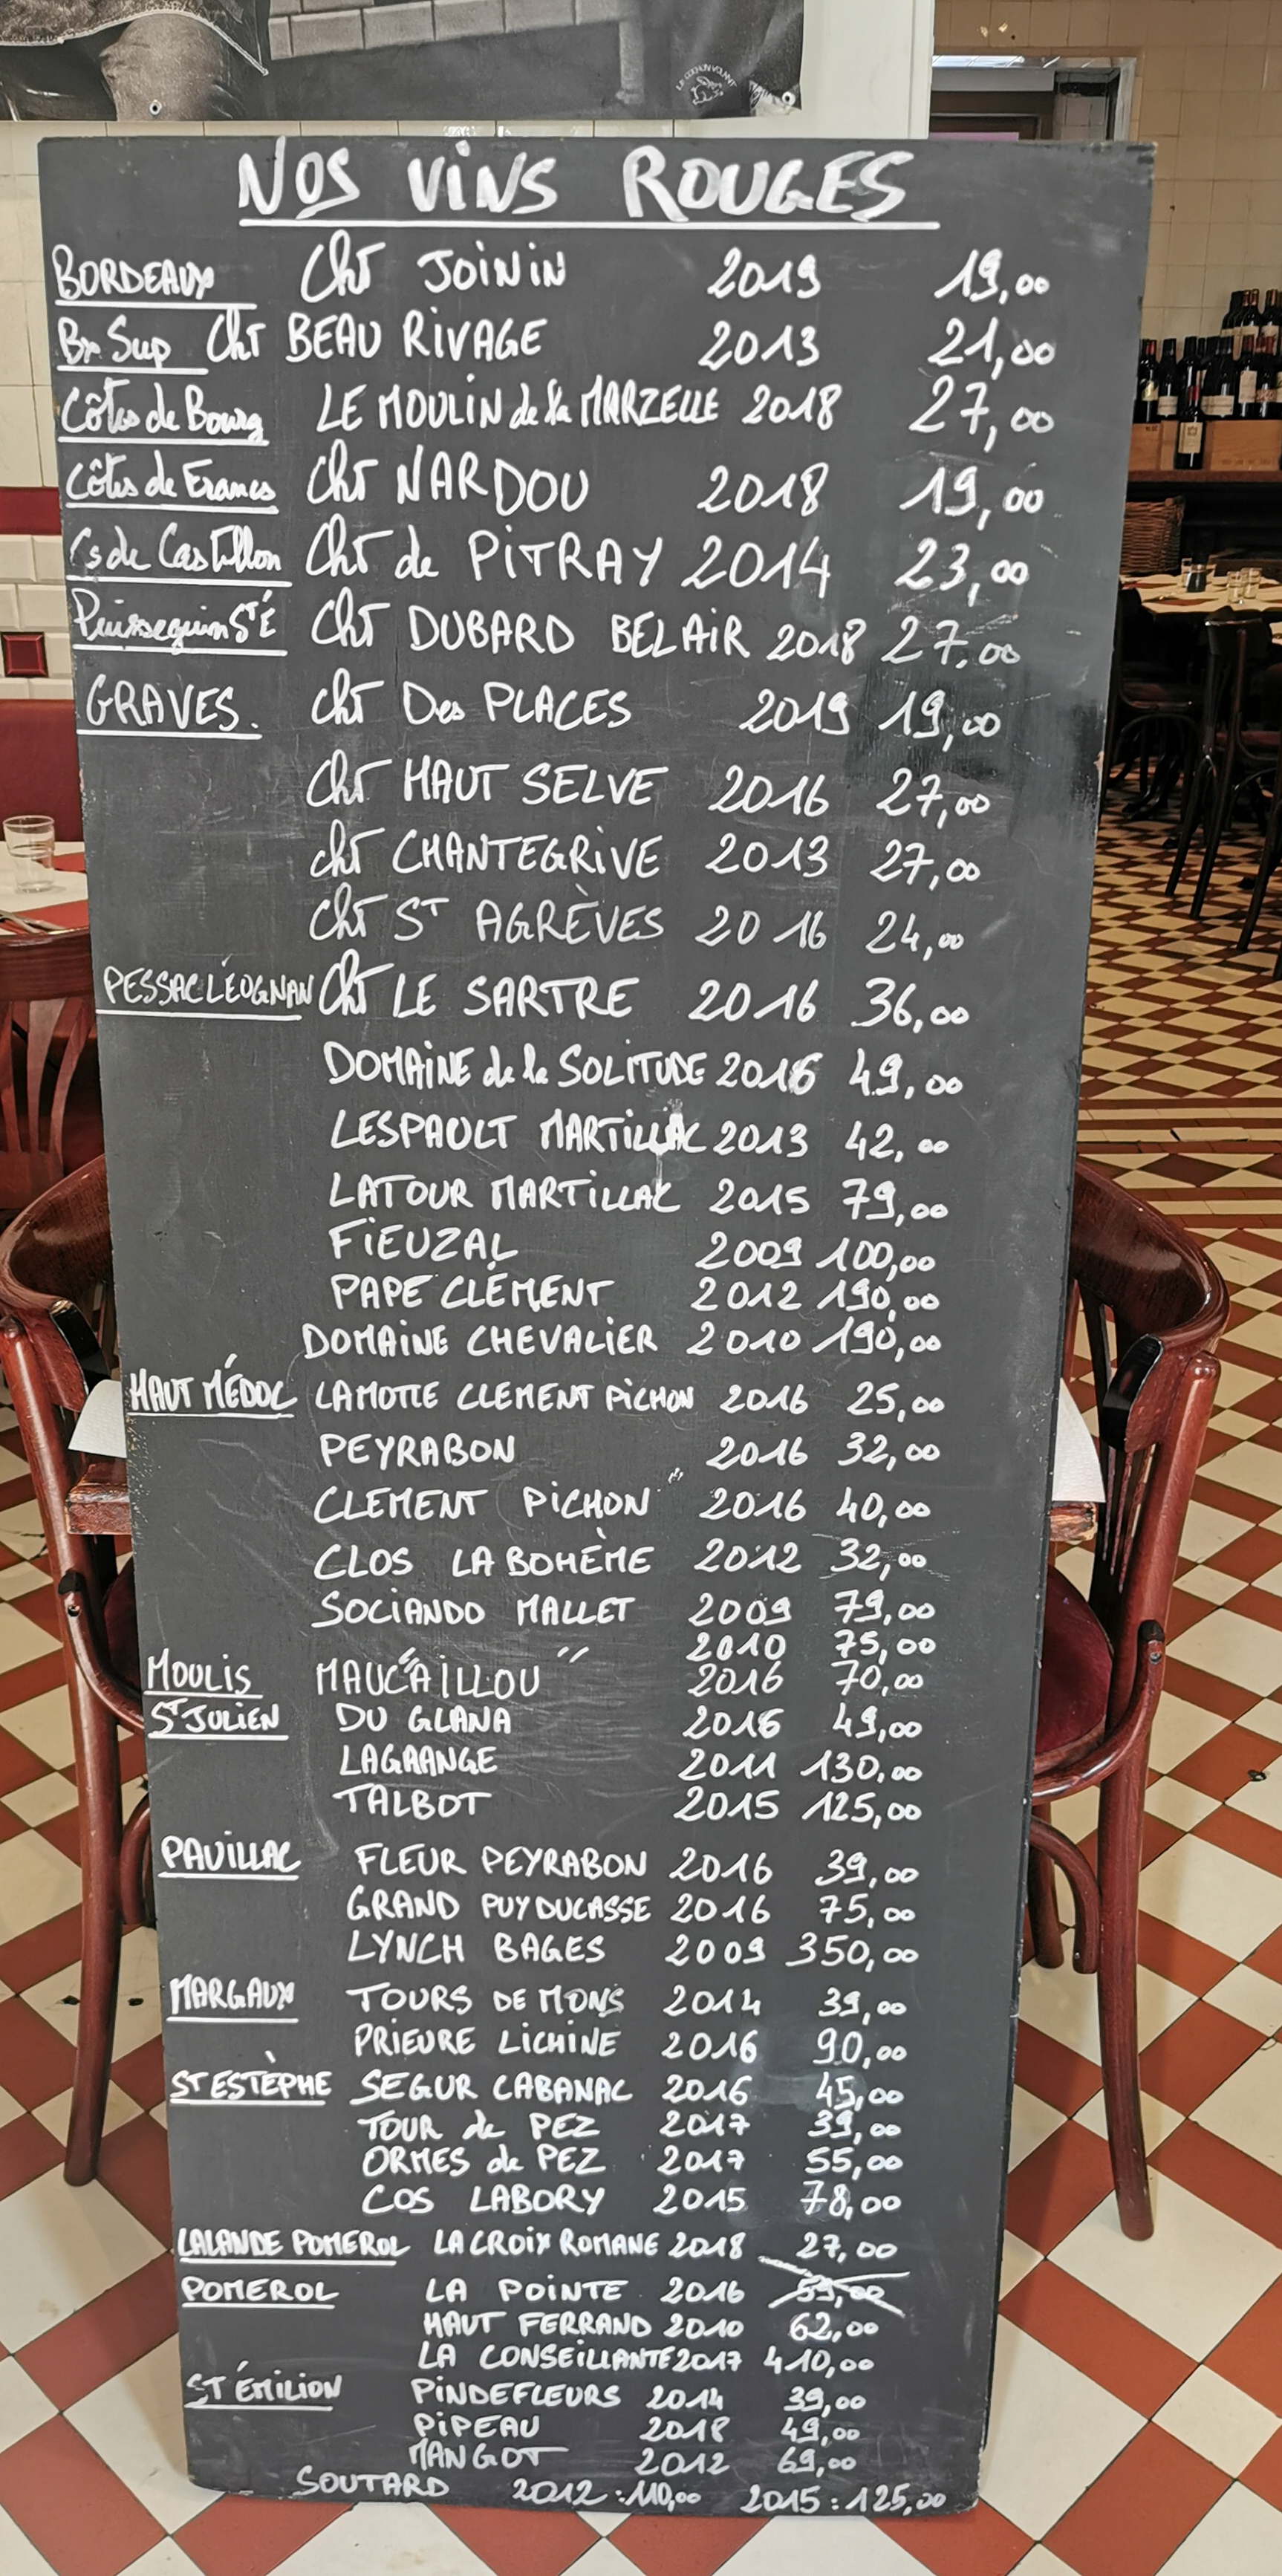 LE COCHON VOLANT
NOS VINS ROUGES
BORDEAUX Cht JOININ 2019 19,00
Bx Sup Cht BEAU RIVAGE 2013 21,00
Côtes de Bourg LE MOULIN de la MARZELLE 2018 27,00
Côtes de Francs Cht NARDOU 2018 19,00
Cs de Castillon Cht de PITRAY 2014 23,00
Puisseguin St É Cht DUBARD BELAIR 2018 27,00
GRAVES. Cht Des PLACES 2019 19,00
Cht HAUT SELVE 2016 27,00
Cht CHANTEGRIVE 2013 27,00
Cht ST AGRÈVES 2016 24,00
PESSAC LÉOGNAN Cht LE SARTRE 2016 36,00
DOMAINE de la SOLITUDE 2016 49,00
LESPAULT MARTILLAC 2013 42,00
LATOUR MARTILLAC 2015 79,00
FIEUZAL 2009 100,00
PAPE CLÉMENT 2012 190,00
DOMAINE CHEVALIER 2010 190,00
HAUT MÉDOC LAMOTTE CLEMENT PICHON 2016 25,00
PEYRABON 2016 32,00
CLEMENT PICHON 2016 40,00
CLOS LA BOHÈME 2012 32,00
SOCIANDO MALLET 2009 79,00
" " 2010 75,00
MOULIS MAUCAILLOU 2016 70,00
ST JULIEN DU GLANA 2016 49,00
LAGRANGE 2011 130,00
TALBOT 2015 125,00
PAUILLAC FLEUR PEYRABON 2016 39,00
GRAND PUY DUCASSE 2016 75,00
LYNCH BAGES 2009 350,00
MARGAUX TOURS DE MONS 2014 39,00
PRIEURE LICHINE 2016 90,00
ST ESTÈPHE SEGUR CABANAC 2016 45,00
TOUR de PEZ 2017 39,00
ORMES de PEZ 2017 55,00
COS LABORY 2015 78,00
LALANDE POMEROL LA CROIX ROMANE 2018 27,00
POMEROL LA POINTE 2016 59,00
HAUT FERRAND 2010 62,00
LA CONSEILLANTE 2017 410,00
ST ÉMILION PINDEFLEURS 2014 39,00
PIPEAU 2018 49,00
MANGOT 2012 69,00
SOUTARD 2012 : 110,00 2015 : 125,00